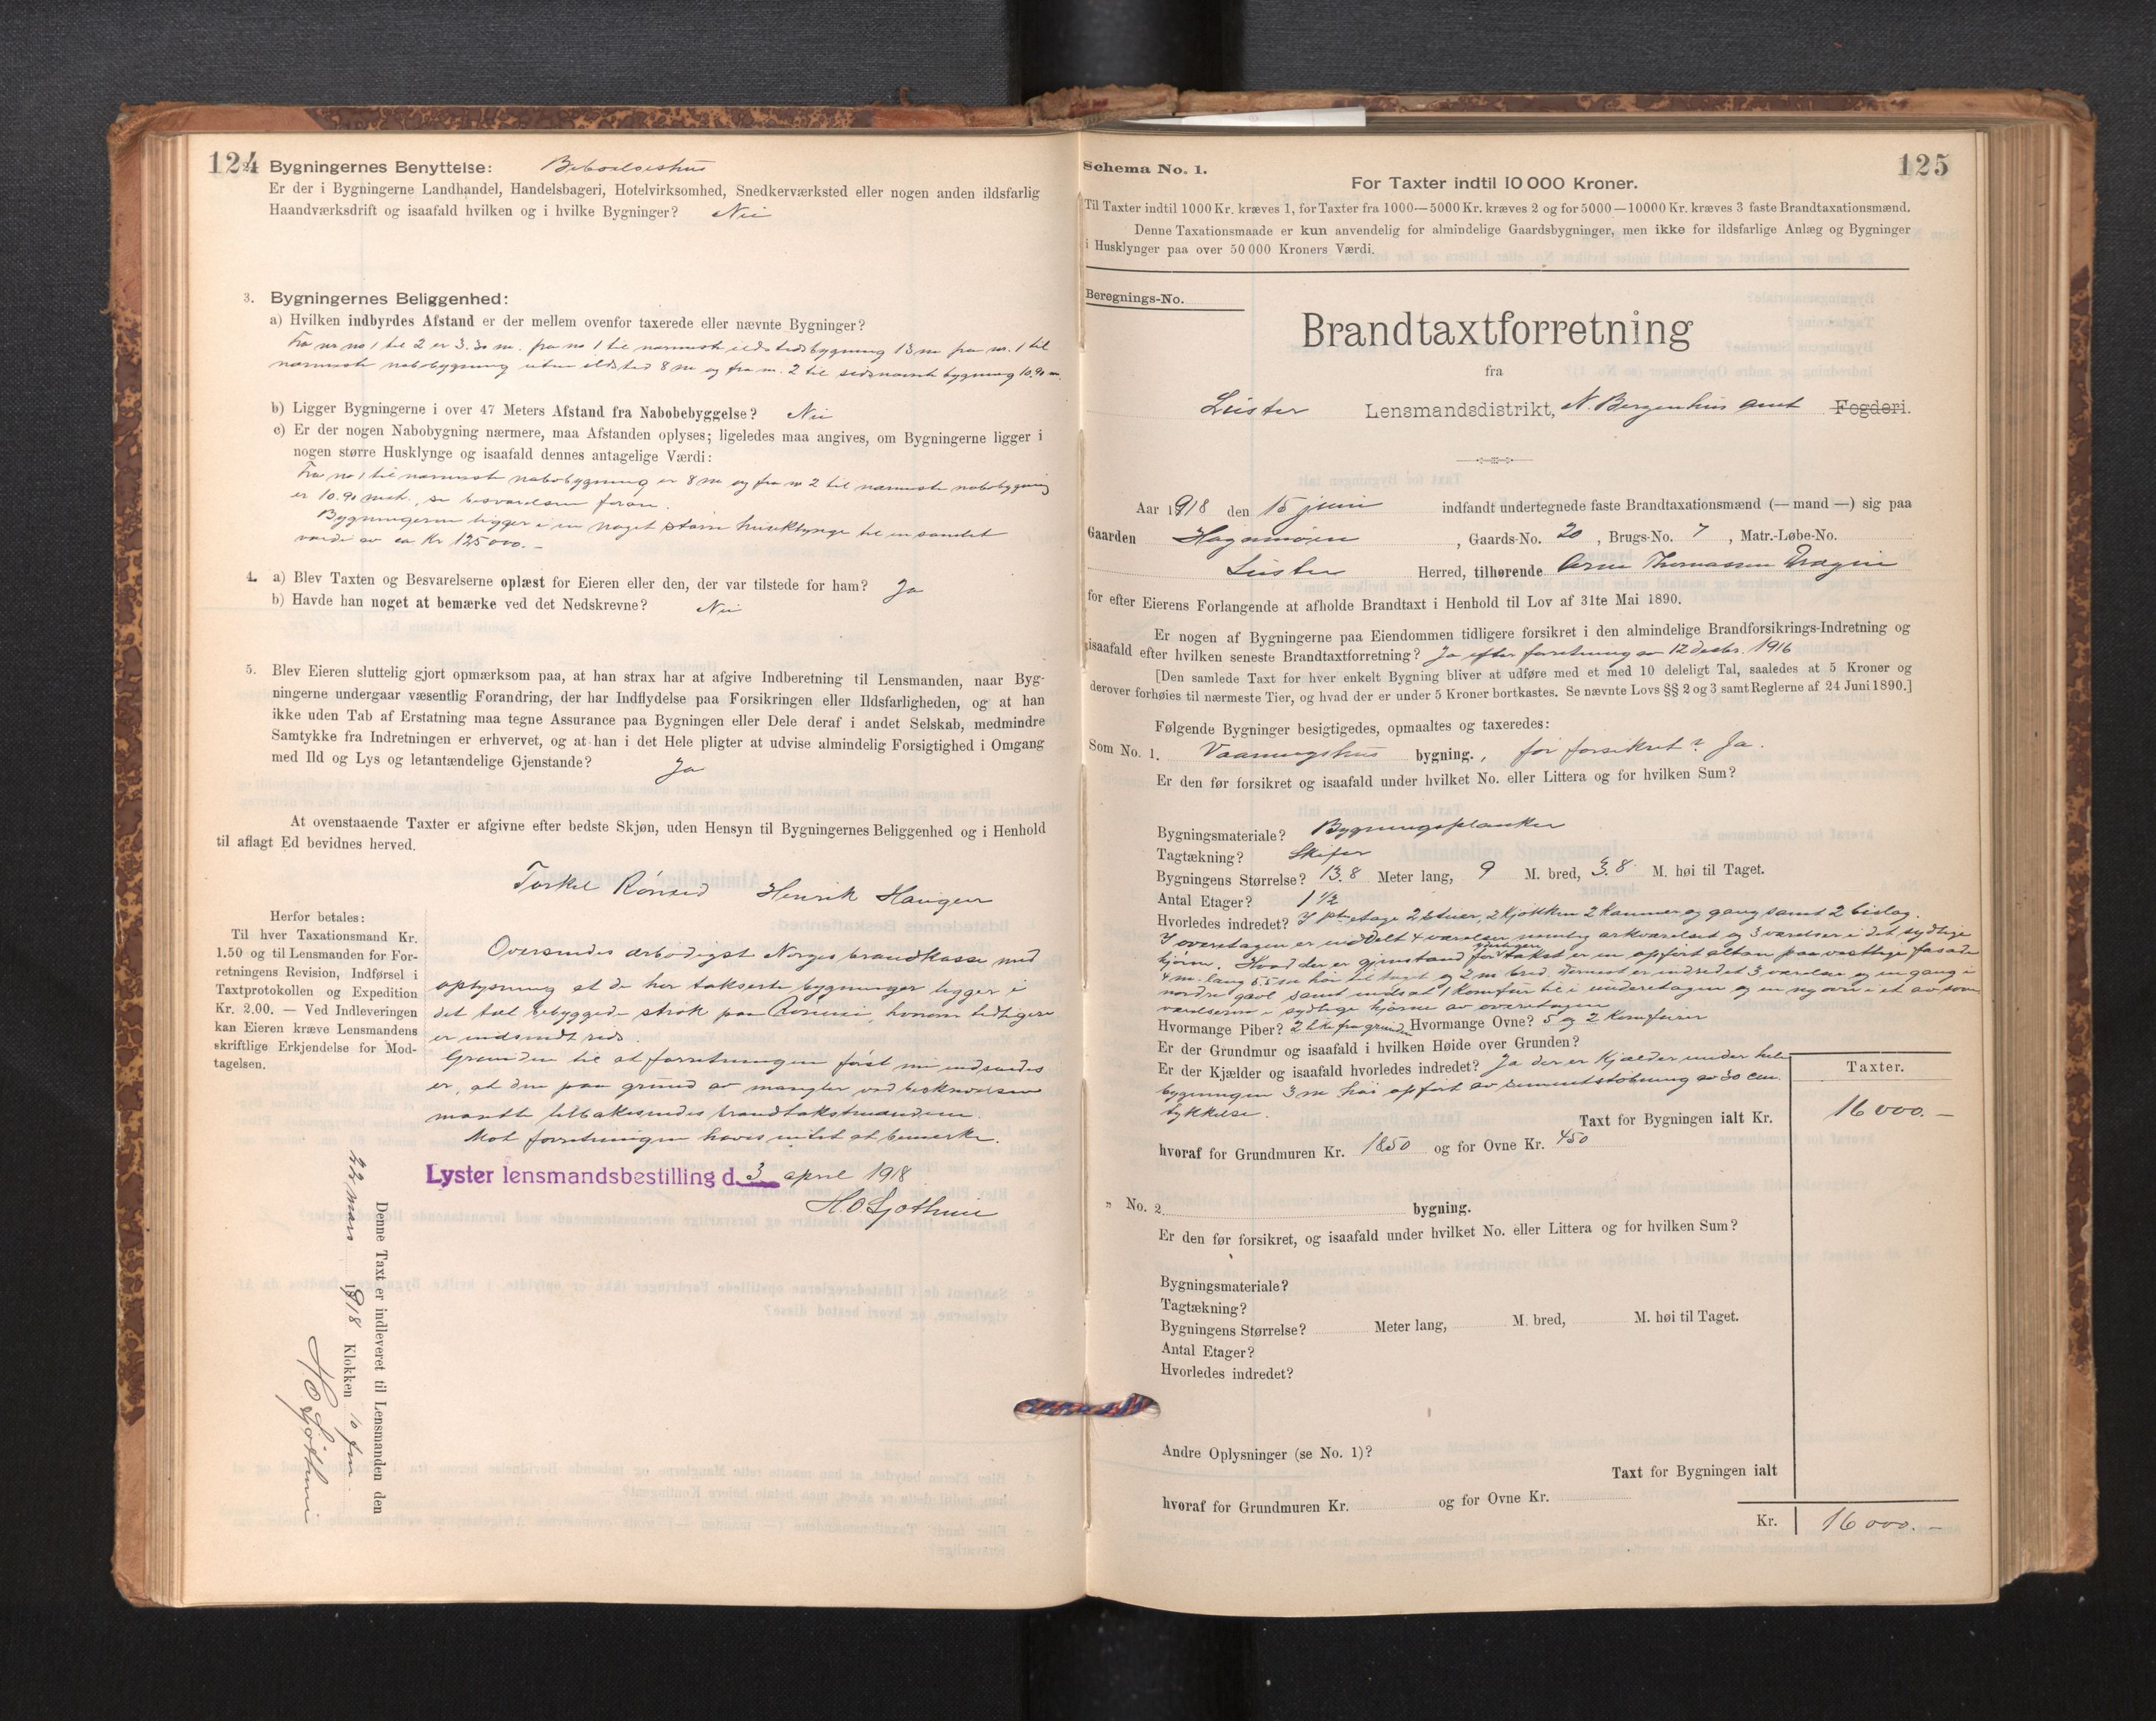 124
2. Bygningernes Benyttelse: Beboelseshus
Er der i Bygningerne Landhandel, Handelsbageri, Hotelvirksomhed, Snedkerværksted eller nogen anden ildsfarlig
Haandværksdrift og isaafald hvilken og i hvilke Bygninger? Nei
3. Bygningernes Beliggenhed:
a) Hvilken indbyrdes Afstand er der mellem ovenfor taxerede eller nævnte Bygninger?
Fra nr no 1 til 2 er 3.30 m. fra no 1 til nærmeste ildstedsbygning 13 m fra nr. 1 til
nærmeste nabobygning uten ildsted 8 m og fra nr. 2 til bygning 10.90 m.
b) Ligger Bygningerne i over 47 Meters Afstand fra Nabobebyggelse? Nei
c) Er der nogen Nabobygning nærmere, maa Afstanden oplyses; ligeledes maa angives, om Bygningerne ligger i
nogen større Husklynge og isaafald dennes antagelige Værdi:
Fra no 1 til nærmeste nabobygning er 8 m og fra nr 2 til nærmeste nabobygning
er 10.90 met., se besvarelsen foran.
Bygningerne ligger i en noget større husklynge til en samlet
værdi av ca Kr 125000.-
4. a) Blev Taxten og Besvarelserne oplæst for Eieren eller den, der var tilstede for ham? Ja
b) Havde han noget at bemærke ved det Nedskrevne? Nei
5. Blev Eieren sluttelig gjort opmærksom paa, at han strax har at afgive Indberetning til Lensmanden, naar Byg-
ningerne undergaar væsentlig Forandring, der har Indflydelse paa Forsikringen eller Ildsfarligheden, og at han
ikke uden Tab af Erstatning maa tegne Assurance paa Bygningen eller Dele deraf i andet Selskab, medmindre
Samtykke fra Indretningen er erhvervet, og at han i det Hele pligter at udvise almindelig Forsigtighed i Omgang
med Ild og Lys og letantændelige Gjenstande? Ja
At ovenstaaende Taxter er afgivne efter bedste Skjøn, uden Hensyn til Bygningernes Beliggenhed og i Henhold
til aflagt Ed bevidnes herved.
Torkel Rønnei Henrik Haugen
Herfor betales:
Til hver Taxationsmand Kr.
1.50 og til Lensmanden for For-
retningens Revision, Indførsel i
Taxtprotokollen og Expedition
Kr. 2.00. — Ved Indleveringen
kan Eieren kræve Lensmandens
skriftlige Erkjendelse for Mod-
tagelsen.
Oversendes ærbødigst Norges brandkasse med
oplysning at de her takserte bygninger ligger i
det tæt bebyggede strøk paa Rønnei, hvorom tidligere
er indsendt
Grunden til at forretningen først nu indsendes
er, at den paa grund av mangler ved beskrivelsen
maatte tilbakesendes brandtakstmændene.
Mot forretningen haves intet at bemerke.
Lyster lensmandsbestilling d. 3 april 1918
H.O. Sjøthun
Denne Taxt er indleveret til Lensmanden den
22 mars 1918 Klokken 10 fm.
H.O. Sjøthun
125
Schema No. 1.
For Taxter indtil 10 000 Kroner.
Til Taxter indtil 1000 Kr. kræves 1, for Taxter fra 1000—5000 Kr. kræves 2 og for 5000—10000 Kr. kræves 3 faste Brandtaxationsmænd.
Denne Taxationsmaade er kun anvendelig for almindelige Gaardsbygninger, men ikke for ildsfarlige Anlæg og Bygninger
i Husklynger paa over 50 000 Kroners Værdi.
Beregnings-No.
Brandtaxtforretning
fra
Luster Lensmandsdistrikt, N. Bergenhus amt Fogderi.
Aar 1918 den 15 juni indfandt undertegnede faste Brandtaxationsmænd (— mand —) sig paa
Gaarden Hagamoen, Gaards-No. 20, Brugs-No. 7, Matr.-Løbe-No.
Luster Herred, tilhørende Arne Thomassen Drægni
for efter Eierens Forlangende at afholde Brandtaxt i Henhold til Lov af 31te Mai 1890.
Er nogen af Bygningerne paa Eiendommen tidligere forsikret i den almindelige Brandforsikrings-Indretning og
isaafald efter hvilken seneste Brandtaxtforretning? Ja efter forretning av 12 decbr. 1916
[Den samlede Taxt for hver enkelt Bygning bliver at udføre med et med 10 deleligt Tal, saaledes at 5 Kroner og
derover forhøies til nærmeste Tier, og hvad der er under 5 Kroner bortkastes. Se nævnte Lovs §§ 2 og 3 samt Reglerne af 24 Juni 1890.]
Følgende Bygninger besigtigedes, opmaaltes og taxeredes:
Som No. 1. Vaaningshus bygning., før forsikret? Ja.
Er den før forsikret og isaafald under hvilket No. eller Littera og for hvilken Sum?
Bygningsmateriale? Bygningsplanker
Tagtækning? Skifer
Bygningens Størrelse? 13.8 Meter lang, 9 M. bred, 3.8 M. høi til Taget.
Antal Etager? 1 1/2
Hvorledes indredet? I 1ste etage 2 stuer, 2 kjøkken 2 kammer og gang samt 2 bislag.
I overetagen er inddelt 4 værelser nemlig arkværelset og 3 værelser i det sydlige
hjørne. Hvad der er gjenstand for takst er en opført altan paa vestlige fasade
4 m. lang 5.5 m høi til taget og 2 m bred. Dernest er indredet 3 værelser og en gang i
nordre gavl samt indsat 1 komfur til i underetagen og en ny ovn i et av sove
værelserne i sydlige hjørne av overetagen
Hvormange Piber? 2 fra grunden Hvormange Ovne? 5 og 2 Komfurer
Er der Grundmur og isaafald i hvilken Høide over Grunden?
Er der Kjælder og isaafald hvorledes indredet? Ja der er kjælder under hele
bygningen 3 m høi opført av sementstøbning av 30 cm.
tykkelse.
Taxter.
Taxt for Bygningen ialt Kr. 16000.-
hvoraf for Grundmuren Kr. 1850 og for Ovne Kr. 450
" No. 2. bygning.
Er den før forsikret, og isaafald under hvilket No. eller Littera og for hvilken Sum?
Bygningsmateriale?
Tagtækning?
Bygningens Størrelse? Meter lang, M. bred, M. høi til Taget.
Antal Etager?
Hvorledes indredet?
Andre Oplysninger (se No. 1)?
Taxt for Bygningen ialt
hvoraf for Grundmuren Kr. og for Ovne Kr.
Kr. 16000.-